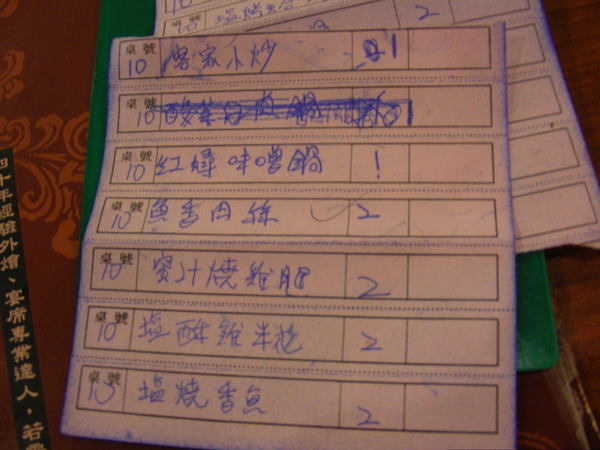 塩燒
2
桌號 10 客家小炒 1
桌號 10 酸菜白肉鍋
桌號 10 紅蟳味噌鍋 1
桌號 10 魚香肉絲 2
桌號 10 蜜汁燒雞腿 2
桌號 10 塩酥雞米花 2
桌號 10 塩燒香魚 2
四十年經驗外燴、宴席專業達人，若需